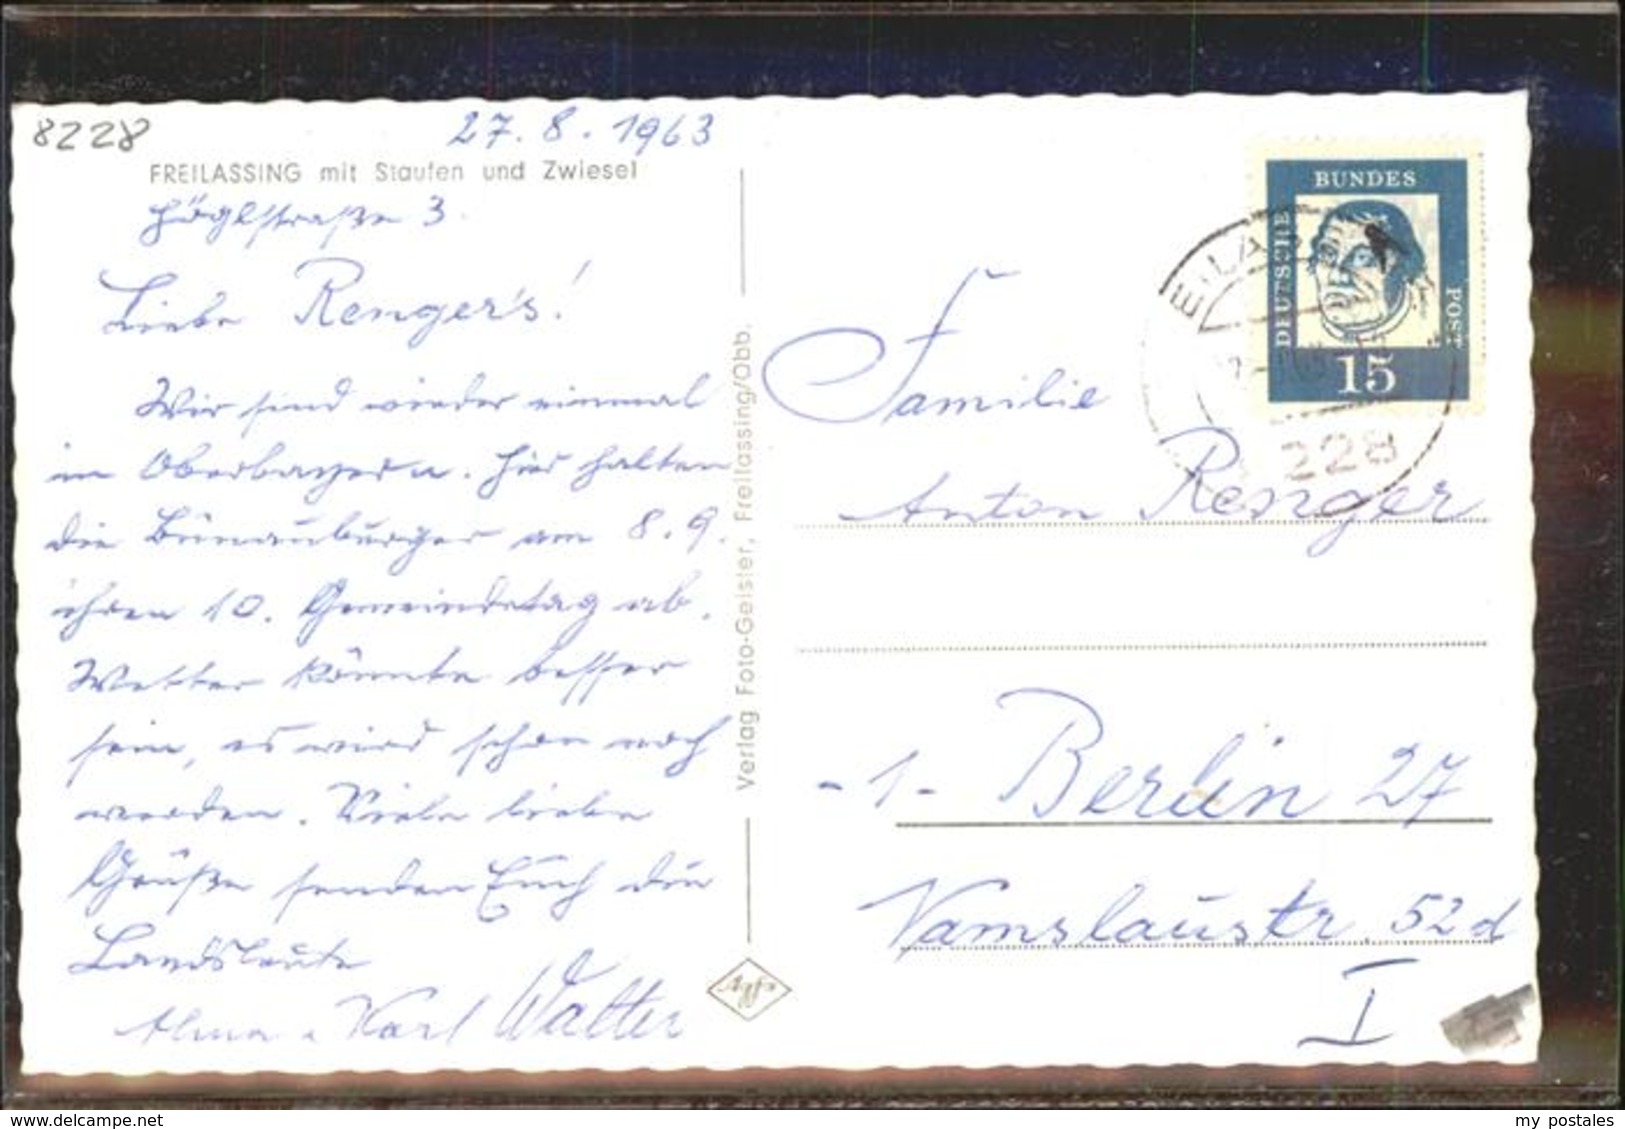 8228
27. 8. 1963
FREILASSING mit Staufen und Zwiesel
Höglstraße 3
Liebe Renger's!
Wir sind wieder einmal
in Oberbayern. Hier halten
die Bünauburger am 8. 9.
ihren 10. Gemeindetag ab.
Wetter könnte besser
sein, es wird schon noch
werden. Viele liebe
Grüße senden Euch die
Landsleute
Alma u Karl Walter
Verlag Foto-Geisler, Freilassing/Obb.
Agfa
DEUTSCHE
BUNDES
POST
15
228
Familie
Anton Renger
-1- Berlin 27
Namslaustr. 52d
I
www.delcampe.net
my_postales